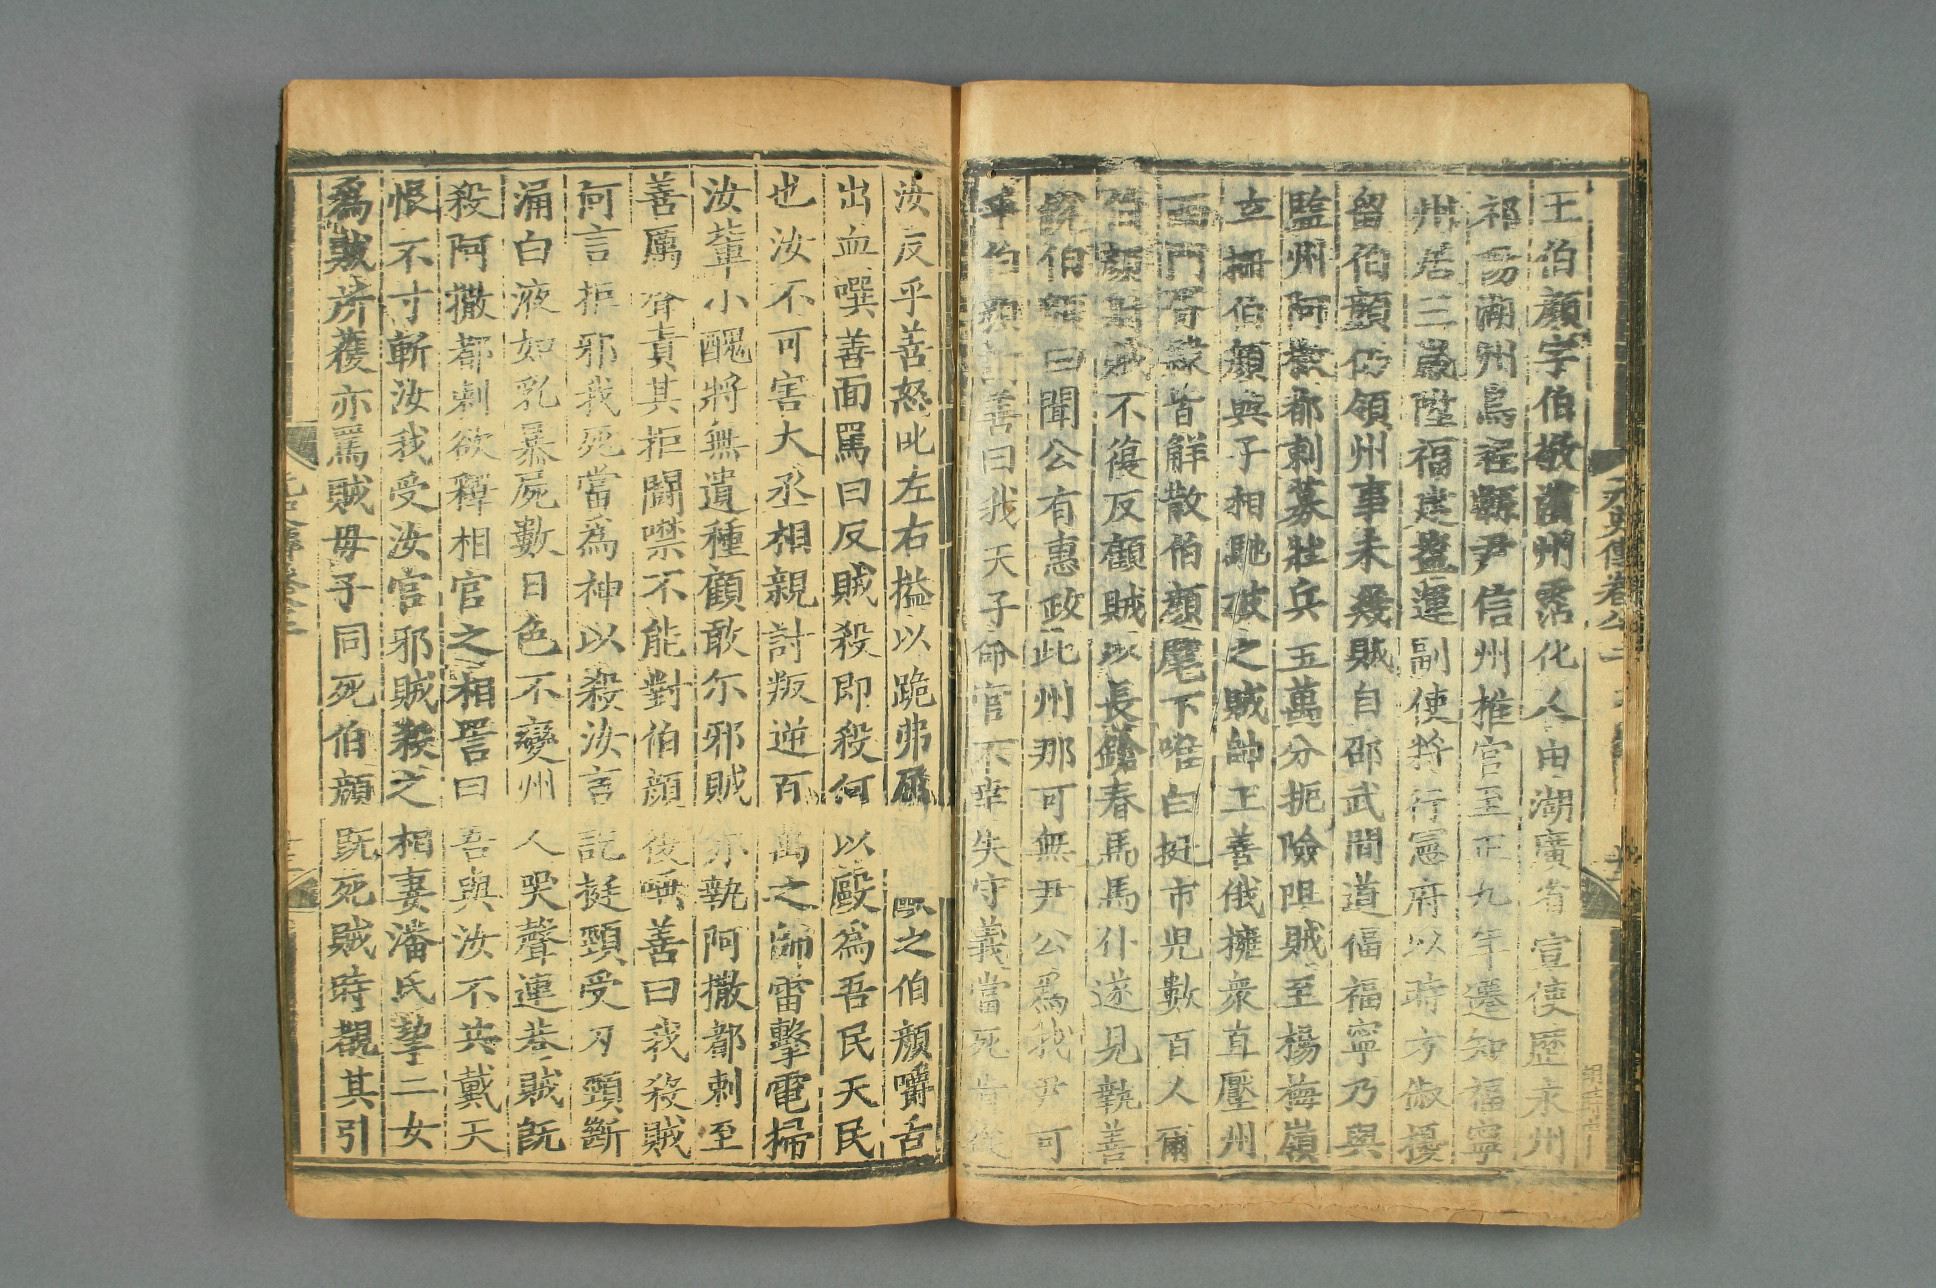 元史傳卷八十二
王伯顏字伯敬濱州霑化人由湖廣省宣使歷永州
祁陽湖州烏程縣尹信州推官至正九年遷知福寧
州居三歲陞福建鹽運副使將行憲府以時方俶擾
留伯顏仍領州事未幾賊自邵武間道偪福寧乃與
監州阿撒都剌募壯兵五萬分扼險阻賊至楊梅嶺
立柵伯顏與子相馳破之賊帥王善俄擁衆直壓州
西門胥隸皆解散伯顏麾下唯白挺市児數百人爾
伯顏射賊不復反顧賊以長鎗舂馬馬仆遂見執善
說伯顏曰聞公有惠政此州那可無尹公爲我尹可
乎伯顏訶善曰我天子命官不幸失守義當死肯從
汝反乎善怒叱左右搤以跪弗屈 敺之伯顏嚼舌
出血噀善面罵曰反賊殺即殺何以毆爲吾民天民
也汝不可害大丞相親討叛逆百萬之師雷擊電掃
汝輩小醜將無遺種顧敢尓邪賊亦執阿撒都剌至
善厲聲責其拒鬪噤不能對伯顏復唾善曰我殺賊
何言拒邪我死當爲神以殺汝言訖挺頸受刃頸斷
涌白液如乳暴屍數日色不變州人哭聲連巷賊旣
殺阿撒都剌欲釋相官之相詈曰吾與汝不共戴天
恨不寸斬汝我受汝官邪賊殺之相妻潘氏挈二女
爲賊所獲亦罵賊母子同死伯顏旣死賊時覩其引
元史傳卷八十二
十三